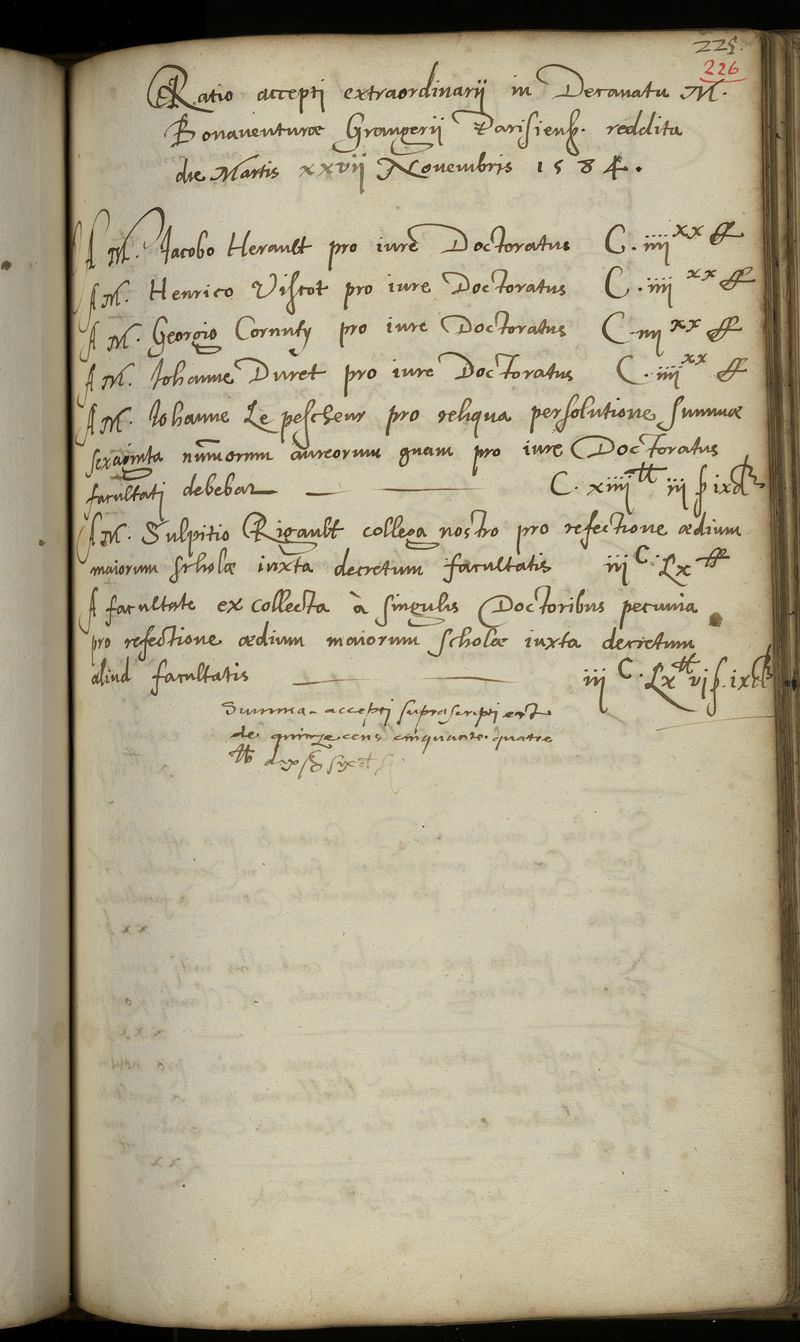 225.
226
Ratio accepti extraordinarij in Decanatu M.
Bonaventuræ Grangerij Parisiens. reddita
die Martis xxvij Novembris 1584.
A M. Jacobo Herault pro iure Doctoratus C. iiij xx ℔
A M. Henrico Viscot pro iure Doctoratus C. iiij xx ℔
A M. Georgio Cornuty pro iure Doctoratus C. iiij xx ℔
A M. Johanne Duret pro iure Doctoratus C. iiij xx ℔
A M. Johanne Le pescheur pro reliqua persolutione summæ
sexaginta nummorum aureorum quam pro iure Doctoratus
facultati debebat C. xiiij ℔ iij s ix d
A M. Sulpitio Rigault collega nostro pro refectione ædium
maiorum scholæ iuxta decretum facultatis iij C. Lx ℔
A facultate ex collecta à singulis Doctoribus pecunia
pro refectione ædium maiorum scholæ iuxta decretum
aliud facultatis iij C. Lx ℔ vj s. ix d
Summa accepti suprascripti est
de quinze cens cinquante quatre
℔ dix s six d